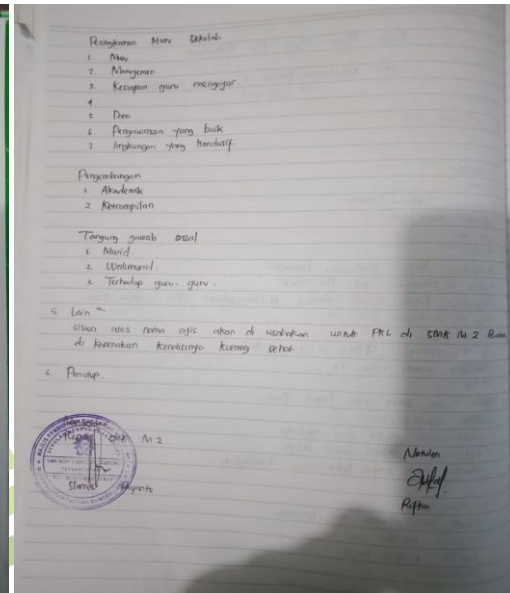 Peningkatan Mutu Sekolah
1. Mutu
2. Manajemen
3. Kesiapan guru mengajar.
4
5 Dana
6. Pengawasan yang baik
7. lingkungan yang kondusif.
Pengembangan
1. Akademik
2. Keterampilan
Tanggung jawab
1. Murid
2. Walimurid.
3. Terhadap guru-guru.
5 Lain
siswa atas nama agis akan di usahakan untuk PKL di SMK M 2
di karenakan kondisinya kurang sehat
6. Penutup.
SMK M 2
Slamet
Notulen
Rifka